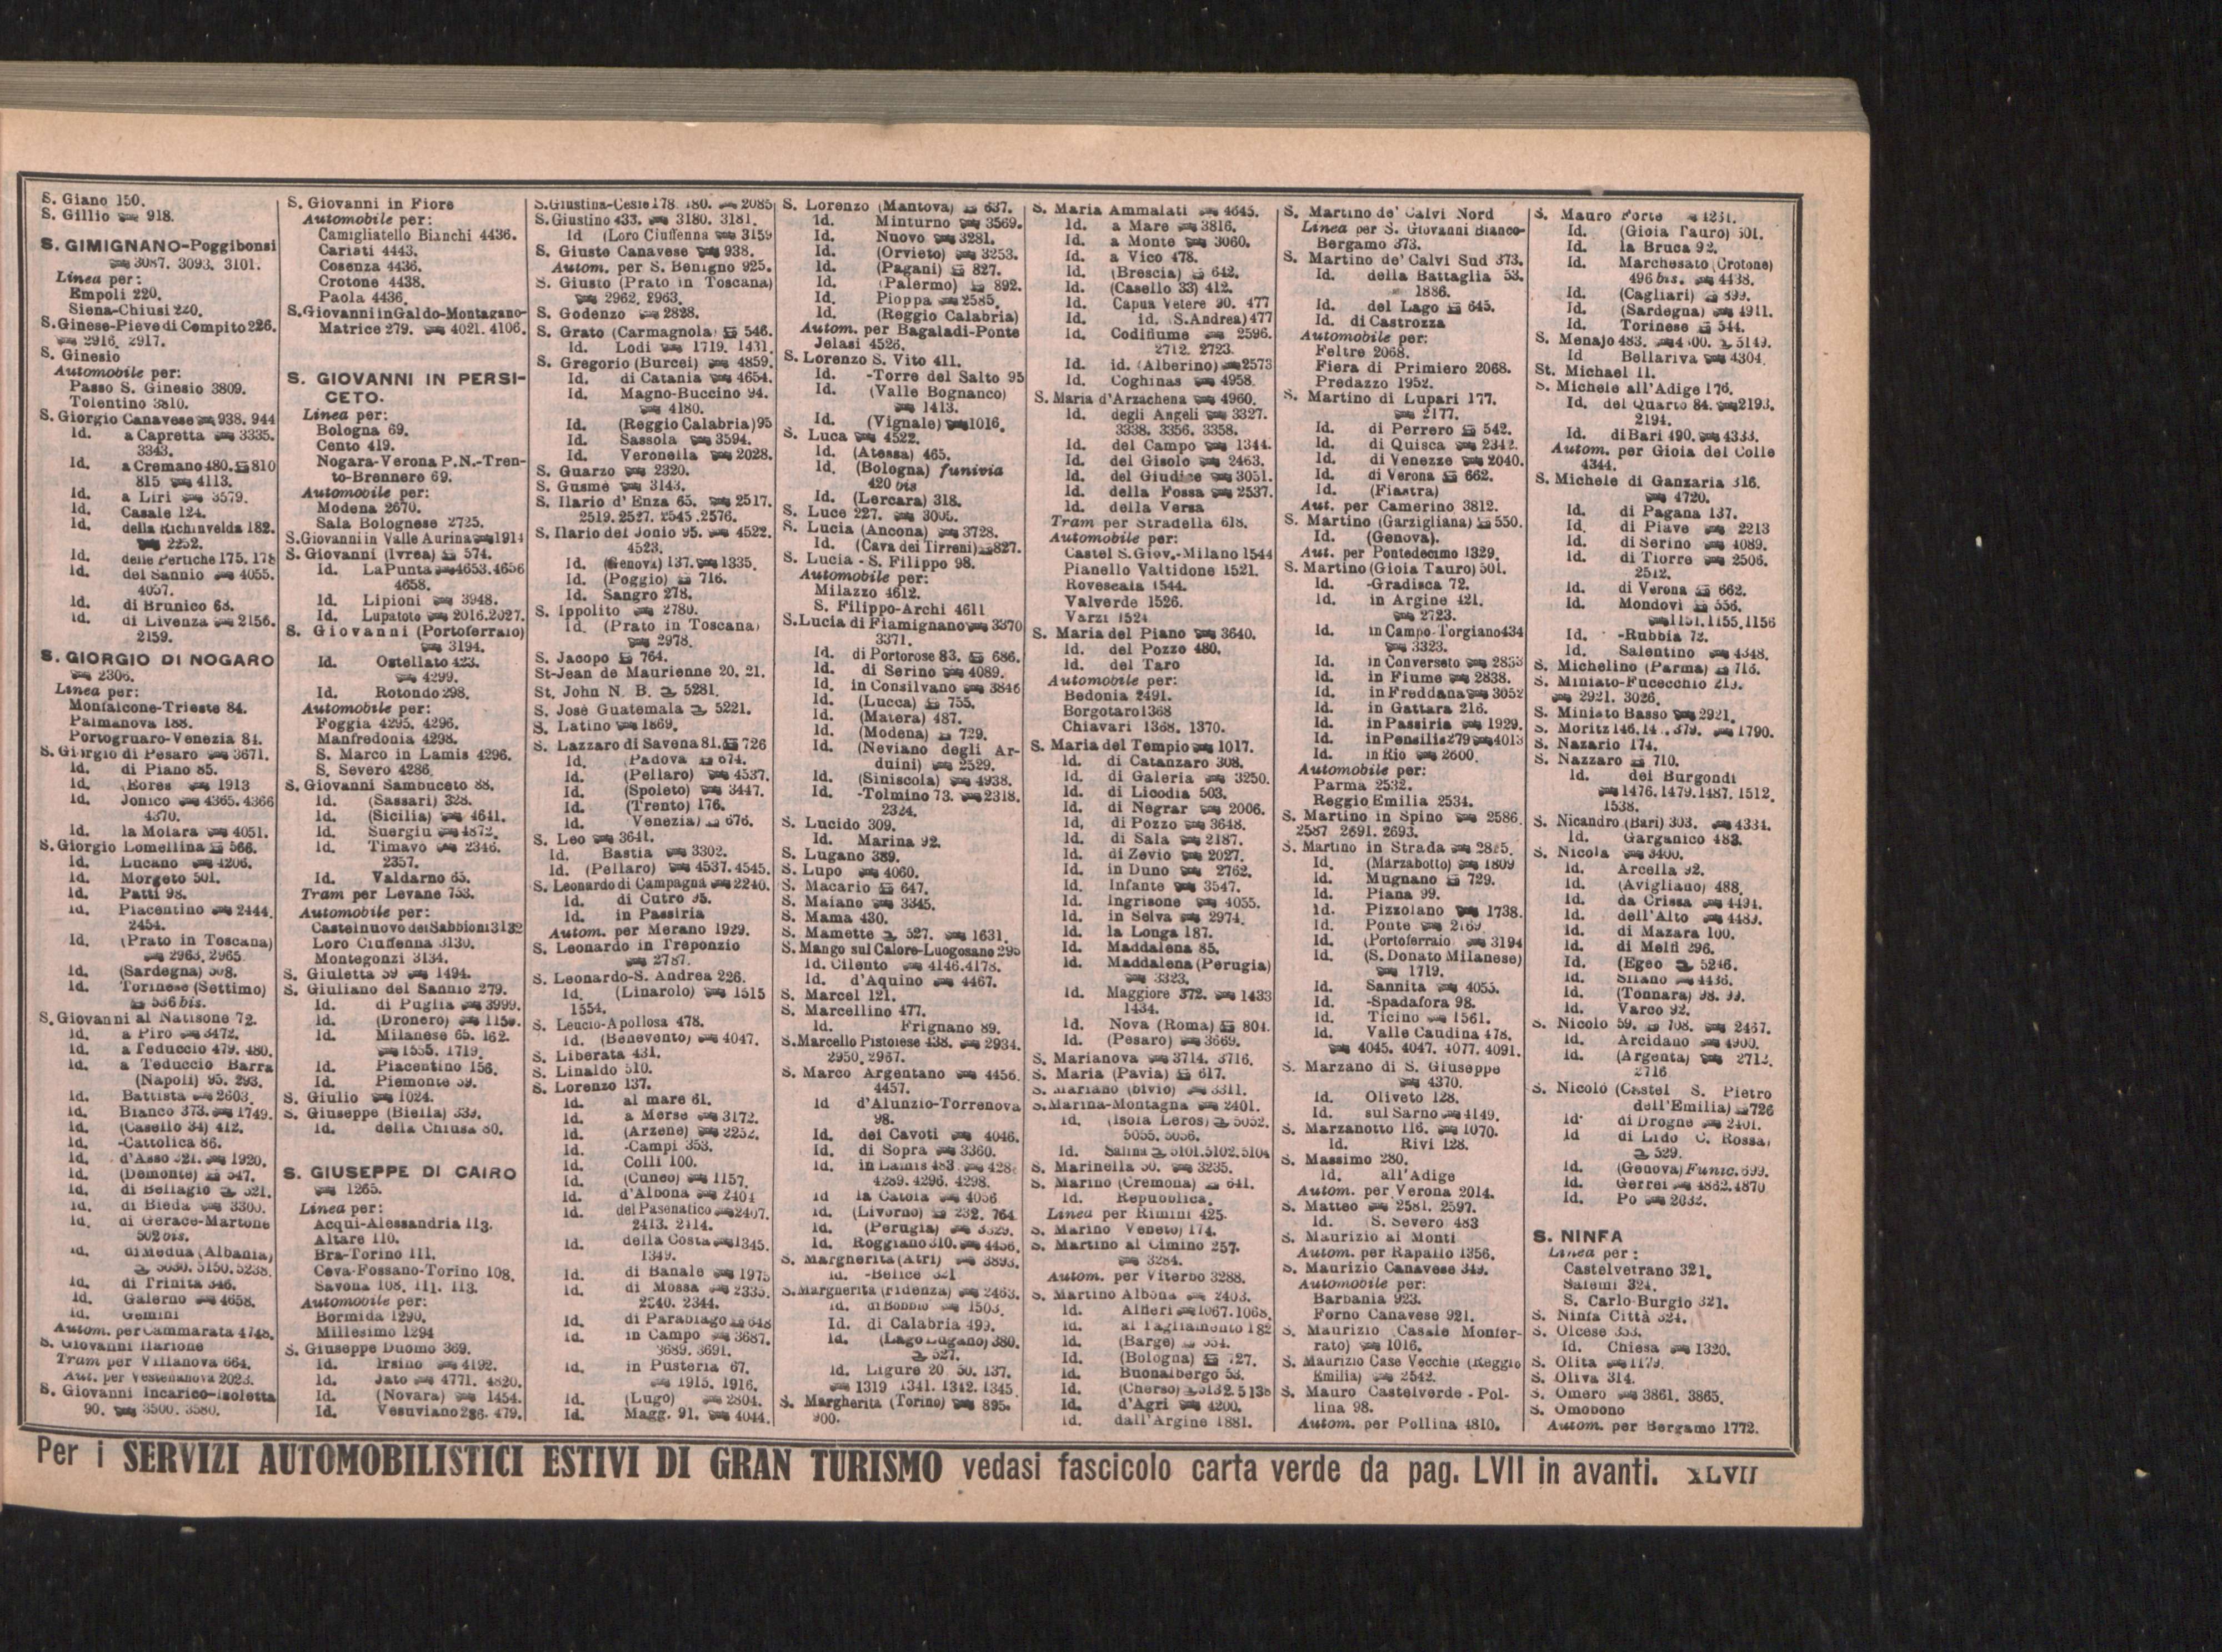 S. Giano 150.
S. Gillio 918.
S. GIMIGNANO-Poggibonsi
3087. 3093. 3101.
Linea per:
Empoli 220.
Siena-Chiusi 220.
S. Ginese-Pieve di Compito 226.
2916. 2917.
S. Ginesio
Automobile per:
Passo S. Ginesio 3809.
Tolentino 3810.
S. Giorgio Canavese 938. 944
Id. a Capretta 3335.
3343.
Id. a Cremano 480. 810
815 4113.
Id. a Liri 3579.
Id. Casale 124.
Id. della Richinvelda 182.
2252.
Id. delle Pertiche 175. 178
Id. del Sannio 4055.
4057.
Id. di Brunico 68.
Id. di Livenza 2156.
2159.
S. GIORGIO DI NOGARO
2306.
Linea per:
Monfalcone-Trieste 84.
Palmanova 188.
Portogruaro-Venezia 84.
S. Giorgio di Pesaro 3671.
Id. di Piano 85.
Id. (Bores 1913
Id. Jonico 4365. 4366
4370.
Id. la Molara 4051.
S. Giorgio Lomellina 566.
Id. Lucano 4206.
Id. Morgeto 501.
Id. Patti 98.
Id. Piacentino 2444.
2454.
Id. (Prato in Toscana)
2963. 2965.
Id. (Sardegna) 508.
Id. Torinese (Settimo)
536 bis.
S. Giovanni al Natisone 72.
Id. a Piro 3472.
Id. a Teduccio 479. 480.
Id. a Teduccio Barra
(Napoli) 95. 293.
Id. Battista 2603
Id. Bianco 373. 1749.
Id. (Casello 34) 412.
Id. -Cattolica 86.
Id. d'Asso 221. 1920.
Id. (Demonte) 547.
Id. di Bellagio 521.
Id. di Bieda 3300.
Id. di Gerace-Martone
502 bis.
Id. di Medua (Albania)
5030. 5150. 5238.
Id. di Trinita 346.
Id. Galerno 4658.
Id. Gemini
Autom. per Cammarata 4748.
S. Giovanni Ilarione
Tram per Villanova 664.
Aut. per Vestenanova 2023.
S. Giovanni Incarico-Isoletta
90. 3500. 3580.
S. Giovanni in Fiore
Automobile per:
Camigliatello Bianchi 4436.
Cariati 4443.
Cosenza 4436.
Crotone 4438.
Paola 4436.
S. Giovanni in Galdo-Montagano-
Matrice 279. 4021. 4106.
S. GIOVANNI IN PERSI-
CETO.
Linea per:
Bologna 69.
Cento 419.
Nogara-Verona P.N.-Tren-
to-Brennero 69.
Automobile per:
Modena 2670.
Sala Bolognese 2725.
S. Giovanni in Valle Aurina 1914
S. Giovanni (Ivrea) 574.
Id. La Punta 4653. 4656
4658.
Id. Lipioni 3948.
Id. Lupatoto 2016. 2027.
S. Giovanni (Portoferraio)
3194.
Id. Ostellato 423.
4299.
Id. Rotondo 298.
Automobile per:
Foggia 4295. 4296.
Manfredonia 4298.
S. Marco in Lamis 4296.
S. Severo 4286.
S. Giovanni Sambuceto 88.
Id. (Sassari) 328.
Id. (Sicilia) 4641.
Id. Suergiu 4872.
Id. Timavo 2346.
2357.
Id. Valdarno 65.
Tram per Levane 753.
Automobile per:
Castelnuovo dei Sabbioni 3132
Loro Ciuffenna 3130.
Montegonzi 3134.
S. Giuletta 59 1494.
S. Giuliano del Sannio 279.
Id. di Puglia 3999.
Id. (Dronero) 1159.
Id. Milanese 65. 162.
1555. 1719.
Id. Piacentino 156.
Id. Piemonte 59.
S. Giulio 1024.
S. Giuseppe (Biella) 539.
Id. della Chiusa 80.
S. GIUSEPPE DI CAIRO
1265.
Linea per:
Acqui-Alessandria 113.
Altare 110.
Bra-Torino 111.
Ceva-Fossano-Torino 108.
Savona 108. 111. 113.
Automobile per:
Bormida 1290.
Millesimo 1294
S. Giuseppe Duomo 369.
Id. Irsino 4192.
Id. Jato 4771. 4820.
Id. (Novara) 1454.
Id. Vesuviano 286. 479.
S. Giustina-Cesio 178. 180. 2085
S. Giustino 433. 3180. 3181.
Id (Loro Ciuffenna 3159
S. Giusto Canavese 938.
Autom. per S. Benigno 925.
S. Giusto (Prato in Toscana)
2962. 2963.
S. Godenzo 2828.
S. Grato (Carmagnola) 546.
Id. Lodi 1719. 1431.
S. Gregorio (Burcei) 4859.
Id. di Catania 4654.
Id. Magno-Buccino 94.
4180.
Id. (Reggio Calabria) 95
Id. Sassola 3594.
Id. Veronella 2028.
S. Guarzo 2320.
S. Gusmè 3143.
S. Ilario d' Enza 65. 2517.
2519. 2527. 2545. 2576.
S. Ilario del Jonio 95. 4522.
4523.
Id. (Genova) 137. 1335.
Id. (Poggio) 716.
Id. Sangro 278.
S. Ippolito 2780.
Id. (Prato in Toscana)
2978.
S. Jacopo 764.
St-Jean de Maurienne 20. 21.
St. John N. B. 5281.
S. Josè Guatemala 5221.
S. Latino 1869.
S. Lazzaro di Savena 81. 726
Id. Padova 674.
Id. (Pellaro) 4537.
Id. (Spoleto) 3447.
Id. (Trento) 176.
Id. Venezia) 676.
S. Leo 3641.
Id. Bastia 3302.
Id. (Pellaro) 4537. 4545.
S. Leonardo di Campagna 2240.
Id. di Cutro 95.
Id. in Passiria
Autom. per Merano 1929.
S. Leonardo in Treponzio
2787.
S. Leonardo-S. Andrea 226.
Id. (Linarolo) 1515
1554.
S. Leucio-Apollosa 478.
Id. (Benevento) 4047.
S. Liberata 431.
S. Linaldo 510.
S. Lorenzo 137.
Id. al mare 61.
Id. a Merse 3172.
Id. (Arzene) 2252.
Id. -Campi 353.
Id. Colli 100.
Id. (Cuneo) 1157.
Id. d'Albona 2401
Id. del Pasenatico 2407.
2413. 2114.
Id. della Costa 1345.
1349.
Id. di Banale 1975
Id. di Mossa 2335.
2340. 2344.
Id. di Parabiago 648
Id. in Campo 3687.
3689. 3691.
Id. in Pusteria 67.
1915. 1916.
Id. (Lugo) 2804.
Id. Magg. 91. 4044.
S. Lorenzo (Mantova) 637.
Id. Minturno 3569.
Id. Nuovo 3281.
Id. (Orvieto) 3253.
Id. (Pagani) 827.
Id. (Palermo) 892.
Id. Pioppa 2585.
Id. (Reggio Calabria)
Autom. per Bagaladi-Ponte
Jelasi 4526.
S. Lorenzo S. Vito 411.
Id. -Torre del Salto 95
Id. (Valle Bognanco)
1413.
Id. (Vignale) 1016.
S. Luca 4522.
Id. (Atessa) 465.
Id. (Bologna) funivia
420 bis
Id. (Lercara) 318.
S. Luce 227. 3005.
S. Lucia (Ancona) 3728.
Id. (Cava dei Tirreni) 827.
S. Lucia - S. Filippo 98.
Automobile per:
Milazzo 4612.
S. Filippo-Archi 4611
S. Lucia di Fiamignano 3370
3371.
Id. di Portorose 83. 686.
Id. di Serino 4089.
Id. in Consilvano 3846
Id. (Lucca) 755.
Id. (Matera) 487.
Id. (Modena) 729.
Id. (Neviano degli Ar-
duini) 2529.
Id. (Siniscola) 4938.
Id. -Tolmino 73. 2318.
2324.
S. Lucido 309.
Id. Marina 92.
S. Lugano 389.
S. Lupo 4060.
S. Macario 647.
S. Maiano 3345.
S. Mama 430.
S. Mamette 527. 1631.
S. Mango sul Calore-Luogosano 295
Id. Cilento 4146. 4178.
Id. d'Aquino 4467.
S. Marcel 121.
S. Marcellino 477.
Id. Frignano 89.
S. Marcello Pistoiese 438. 2934.
2950. 2967.
S. Marco Argentano 4456.
4457.
Id d'Alunzio-Torrenova
98.
Id. dei Cavoti 4046.
Id. di Sopra 3360.
Id. in Lamis 483
4289. 4296. 4298.
Id la Catola 4056
Id. (Livorno) 232. 764
Id. (Perugia) 3329.
Id. Roggiano 310. 4456.
S. Margherita (Atri) 3893.
Id. -Belice 321
S. Margherita (Fidenza) 2463.
Id. di Bobbio 1503.
Id. di Calabria 499.
Id. (Lago Lugano) 380.
527.
Id. Ligure 20. 50. 137.
1319 1341. 1342. 1345.
S. Margherita (Torino) 895.
900.
S. Maria Ammalati 4645.
Id. a Mare 3816.
Id. a Monte 3060.
Id. a Vico 478.
Id. (Brescia) 642.
Id. (Casello 33) 412.
Id. Capua Vetere 90. 477
Id. id. (S. Andrea) 477
Id. Codifiume 2596.
2712. 2723.
Id. id. (Alberino) 2573
Id. Coghinas 4958.
S. Maria d'Arzachena 4960.
Id. degli Angeli 3327.
3338. 3356. 3358.
Id. del Campo 1344.
Id. del Gisolo 2463.
Id. del Giudice 3051.
Id. della Fossa 2537.
Id. della Versa
Tram per Stradella 618.
Automobile per:
Castel S. Giov.-Milano 1544
Pianello Valtidone 1521.
Rovescala 1544.
Valverde 1526.
Varzi 1524
S. Maria del Piano 3640.
Id. del Pozzo 480.
Id. del Taro
Automobile per:
Bedonia 2491.
Borgotaro 1368
Chiavari 1368. 1370.
S. Maria del Tempio 1017.
Id. di Catanzaro 308.
Id. di Galeria 3250.
Id. di Licodia 503.
Id. di Negrar 2006.
Id. di Pozzo 3648.
Id. di Sala 2187.
Id. di Zevio 2027.
Id. in Duno 2762.
Id. Infante 3547.
Id. Ingrisone 4055.
Id. in Selva 2974.
Id. la Longa 187.
Id. Maddalena 85.
Id. Maddalena (Perugia)
3323.
Id. Maggiore 372. 1433
1434.
Id. Nova (Roma) 804.
Id. (Pesaro) 3669.
S. Marianova 3714. 3716.
S. Maria (Pavia) 617.
S. Mariano (bivio) 3311.
S. Marina-Montagna 2401.
Id. (Isola Leros) 5052.
5055. 5056.
Id. Salina 5101. 5102. 5104
S. Marinella 50. 3235.
S. Marino (Cremona) 641.
Id. Repubblica.
Linea per Rimini 425.
S. Marino Veneto) 174.
S. Martino al Cimino 257.
3284.
Autom. per Viterbo 3288.
S. Martino Albona 2403.
Id. Alfieri 1067. 1068.
Id. al Tagliamento 182
Id. (Barge) 554.
Id. (Bologna) 727.
Id. Buonalbergo 53.
Id. (Cherso) 5132. 5138
Id. d'Agri 4200.
Id. dall'Argine 1881.
S. Martino de' Calvi Nord
Linea per S. Giovanni Bianco-
Bergamo 373.
S. Martino de' Calvi Sud 373.
Id. della Battaglia 53.
1886.
Id. del Lago 645.
Id. di Castrozza
Automobile per:
Feltre 2068.
Fiera di Primiero 2068.
Predazzo 1952.
S. Martino di Lupari 177.
2177.
Id. di Perrero 542.
Id. di Quisca 2342.
Id. di Venezze 2040.
Id. di Verona 662.
Id. (Fiastra)
Aut. per Camerino 3812.
S. Martino (Garzigliana) 550.
Id. (Genova).
Aut. per Pontedecimo 1329.
S. Martino (Gioia Tauro) 501.
Id. -Gradisca 72.
Id. in Argine 421.
2723.
Id. in Campo-Torgiano 434
3323.
Id. in Converseto 2833
Id. in Fiume 2838.
Id. in Freddana 3052
Id. in Gattara 216.
Id. in Passiria 1929.
Id. in Pensilis 279 4013
Id. in Rio 2600.
Automobile per:
Parma 2532.
Reggio Emilia 2534.
S. Martino in Spino 2586.
2587 2691. 2693.
S. Martino in Strada
Id (Marzabotto) 1809
Id. Mugnano 729.
Id. Piana 99.
Id. Pizzolano 1738.
Id. Ponte 2169
Id. (Portoferraio 3194
Id. (S. Donato Milanese)
1719.
Id. Sannita 4055.
Id. -Spadafora 98.
Id. Ticino 1561.
Id. Valle Caudina 478.
4045. 4047. 4077. 4091.
S. Marzano di S. Giuseppe
4370.
Id. Oliveto 128.
Id. sul Sarno 4149.
S. Marzanotto 116. 1070.
Id. Rivi 128.
S. Massimo 280.
Id. all'Adige
Autom. per Verona 2014.
S. Matteo 2581. 2597.
Id. (S. Severo 483
S. Maurizio ai Monti
Autom. per Rapallo 1356.
S. Maurizio Canavese 349.
Automobile per:
Barbania 923.
Forno Canavese 921.
S. Maurizio (Casale Monfer-
rato) 1016.
S. Maurizio Case Vecchie (Reggio
Emilia) 2542.
S. Mauro Castelverde - Pol-
lina 98.
Autom. per Pollina 4810.
S. Mauro Forte 4231.
Id. (Gioia Tauro) 501.
Id. la Bruca 92.
Id. Marchesato (Crotone)
496 bis. 4438.
Id. (Cagliari) 899.
Id. (Sardegna) 4911.
Id. Torinese 544.
S. Menajo 483. 5149.
Id Bellariva 4304.
St. Michael 11.
S. Michele all'Adige 176.
Id. del Quarto 84. 2193.
2194.
Id. di Bari 490. 4333.
Autom. per Gioia del Colle
4344.
S. Michele di Ganzaria 316.
4720.
Id. di Pagana 137.
Id. di Piave 2213
Id. di Serino 4089.
Id. di Tiorre 2506.
2512.
Id. di Verona 662.
Id. Mondovì 556.
1151. 1155. 1156
Id. -Rubbia 72.
Id. Salentino 4348.
S. Michelino (Parma) 716.
S. Miniato-Fucecchio 219.
2921. 3026.
S. Miniato Basso 2921.
S. Moritz 146. 379. 1790.
S. Nazario 174.
S. Nazzaro 710.
Id. dei Burgondi
1476. 1479. 1487. 1512.
1538.
S. Nicandro (Bari) 303. 4334.
Id. Garganico 483.
S. Nicola 3400.
Id. Arcella 92.
Id. (Avigliano) 488.
Id. da Crissa 4494.
Id. dell'Alto 4489.
Id. di Mazara 100.
Id. di Melfi 296.
Id. (Egeo 5246.
Id. Silano 4436.
Id. (Tonnara) 98. 99.
Id. Varco 92.
S. Nicolo 59. 708. 2467.
Id. Arcidano 4900.
Id. (Argenta) 2712.
2716
S. Nicolò (Castel S. Pietro
dell'Emilia) 726
Id. di Drogne 2401.
Id di Lido C. Rossa)
529.
Id. (Genova) Funic. 699.
Id. Gerrei 4862. 4870
Id. Po 2032.
S. NINFA
Linea per:
Castelvetrano 321.
Salemi 324.
S. Carlo-Burgio 321.
S. Ninfa Città 324.
S. Olcese 353.
Id. Chiesa 1320.
S. Olita 1179.
S. Oliva 314.
S. Omero 3861. 3865.
S. Omobono
Autom. per Bergamo 1772.
Per i SERVIZI AUTOMOBILISTICI ESTIVI DI GRAN TURISMO vedasi fascicolo carta verde da pag. LVII in avanti. XLVII